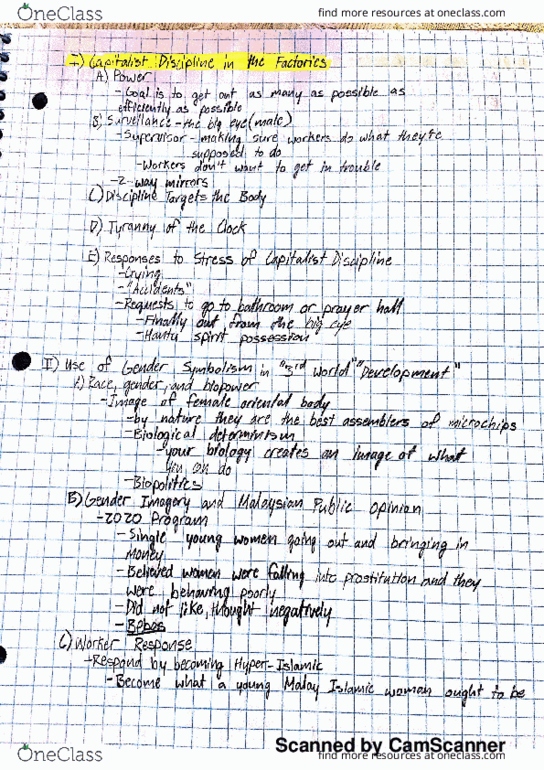 OneClass
find more resources at oneclass.com
I) Capitalist Discipline in the Factories
A) Power
- Goal is to get out as many as possible as
efficiently as possible
B) Surveillance - the big eye (male)
- Supervisor - making sure workers do what they're
supposed to do
- Workers don't want to get in trouble
- 2-way mirrors
C) Discipline Targets the Body
D) Tyranny of the Clock
E) Responses to Stress of Capitalist Discipline
- Crying
- "Accidents"
- Requests to go to bathroom or prayer hall
- Finally out from the big eye
- Hantu spirit possession
II) Use of Gender Symbolism in "3rd World" "Development"
A) Race, gender, and biopower
- Image of female oriental body
- by nature they are the best assemblers of microchips
- Biological determinism
- your biology creates an image of what
you can do
- Biopolitics
B) Gender Imagery and Malaysian Public Opinion
- 2020 Program
- Single young women going out and bringing in
money
- Believed women were falling into prostitution and they
were behaving poorly
- Did not like, thought negatively
- Bebas
C) Worker Response
- Respond by becoming Hyper-Islamic
- Become what a young Malay Islamic woman ought to be
Scanned by CamScanner
OneClass
find more resources at oneclass.com